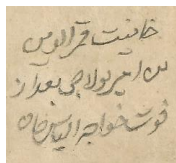 خانیت قرا لوس
بن امیر بولاجی بعد از
فوت خواجه الیاس خان